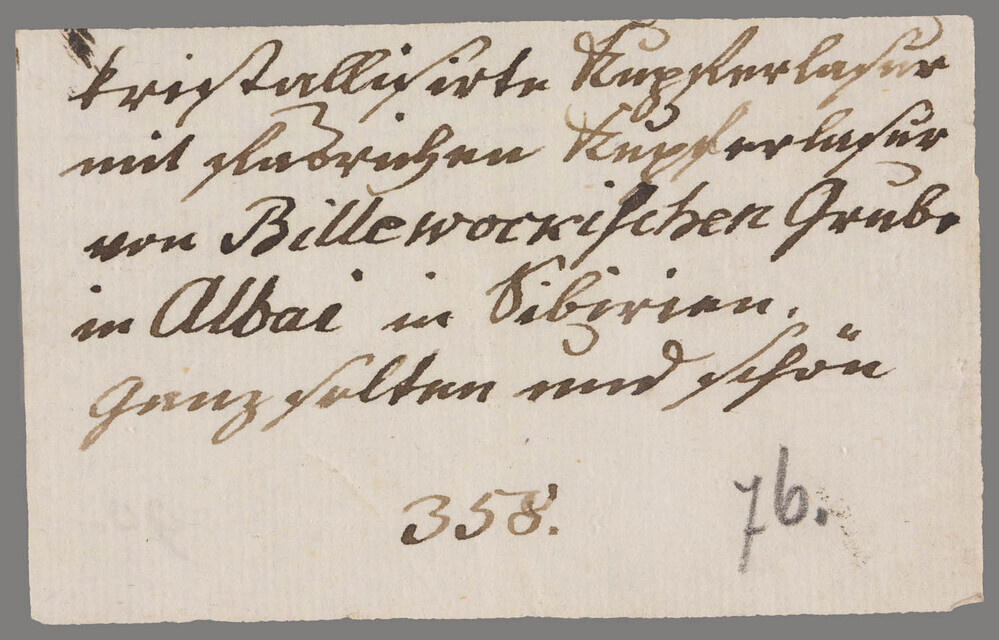 kristallisirte Kupferlasur
mit strahlichen Kupferlasur
von Billewockischen Grube
in Albai in Sibirien.
Ganz selten und schön
358. 76.